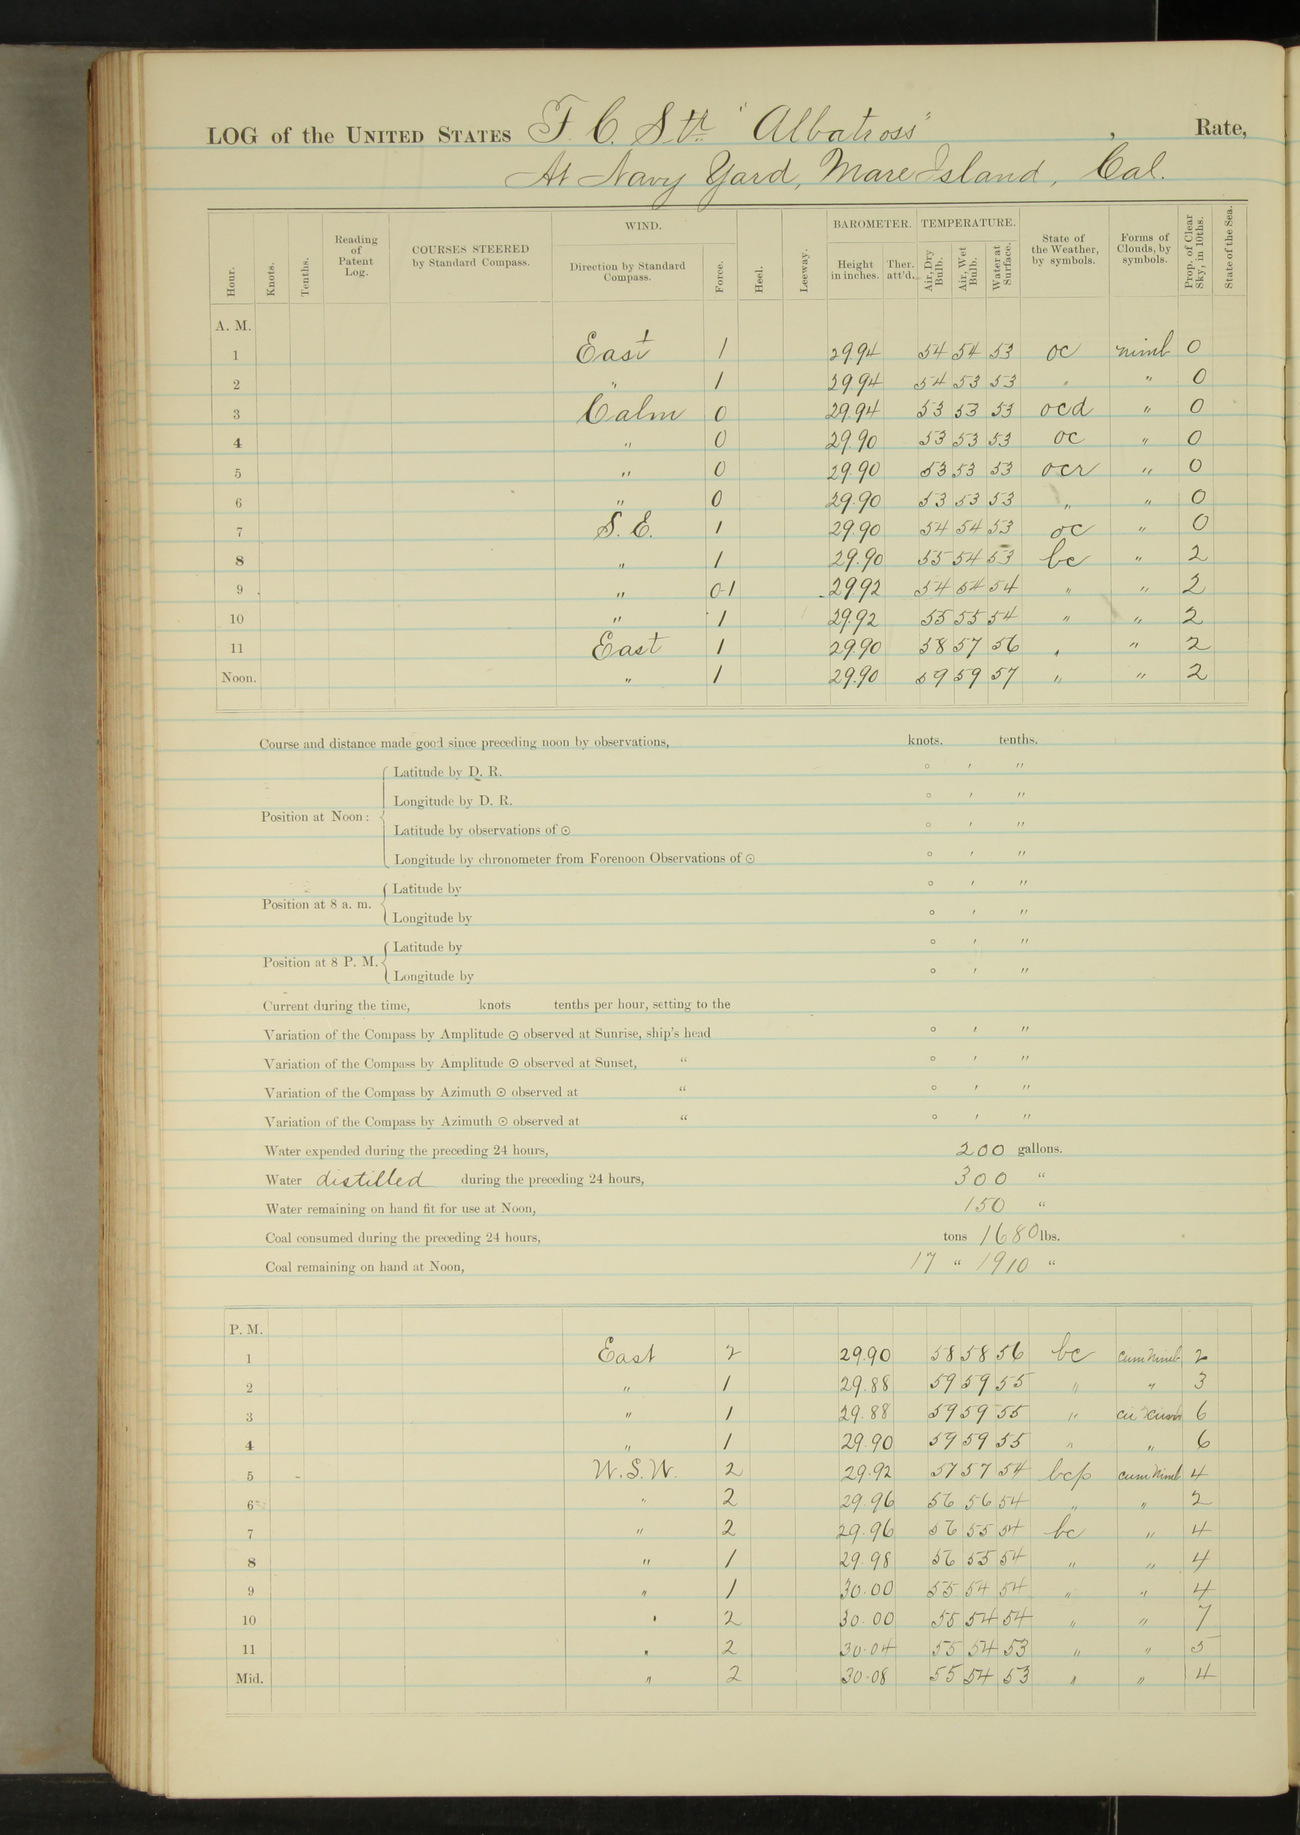 LOG of the UNITED STATES F. C. Str. "Albatross", Rate,
At Navy Yard, Mare Island, Cal.
Hour. Knots. Tenths. Reading of Patent Log. COURSES STEERED by Standard Compass. WIND. Direction by Standard Compass. Force. Heel. Leeway. BAROMETER. Height in inches. Ther. att'd. TEMPERATURE. Air, Dry Bulb. Air, Wet Bulb. Water at Surface. State of the Weather, by symbols. Forms of Clouds, by symbols. Prop. of Clear Sky, in 10ths. State of the Sea.
A. M.
1 East 1 29.94 54 54 53 oc nimb 0
2 " 1 29.94 54 53 53 " " 0
3 Calm 0 29.94 53 53 53 ocd " 0
4 " 0 29.90 53 53 53 oc " 0
5 " 0 29.90 53 53 53 ocr " 0
6 " 0 29.90 53 53 53 " " 0
7 S. E. 1 29.90 54 54 53 oc " 0
8 " 1 29.90 55 54 53 bc " 2
9 " 0-1 29.92 54 54 54 " " 2
10 " 1 29.92 55 55 54 " " 2
11 East 1 29.90 58 57 56 " " 2
Noon. " 1 29.90 59 59 57 " " 2
Course and distance made good since preceding noon by observations, knots. tenths.
Position at Noon: Latitude by D. R. ° ' "
Longitude by D. R. ° ' "
Latitude by observations of ☉ ° ' "
Longitude by chronometer from Forenoon Observations of ☉ ° ' "
Position at 8 a. m. Latitude by ° ' "
Longitude by ° ' "
Position at 8 P. M. Latitude by ° ' "
Longitude by ° ' "
Current during the time, knots tenths per hour, setting to the
Variation of the Compass by Amplitude ☉ observed at Sunrise, ship's head ° ' "
Variation of the Compass by Amplitude ☉ observed at Sunset, " ° ' "
Variation of the Compass by Azimuth ☉ observed at " ° ' "
Variation of the Compass by Azimuth ☉ observed at " ° ' "
Water expended during the preceding 24 hours, 200 gallons.
Water distilled during the preceding 24 hours, 300 "
Water remaining on hand fit for use at Noon, 150 "
Coal consumed during the preceding 24 hours, tons 1680 lbs.
Coal remaining on hand at Noon, 17 " 1910 "
P. M.
1 East 2 29.90 58 58 56 bc cum Nimb 2
2 " 1 29.88 59 59 55 " " 3
3 " 1 29.88 59 59 55 " 6
4 " 1 29.90 59 59 55 " " 6
5 W.S.W. 2 29.92 57 57 54 bcp cum Nimb 4
6 " 2 29.96 56 56 54 " " 2
7 " 2 29.96 56 55 54 bc " 4
8 " 1 29.98 56 55 54 " " 4
9 " 1 30.00 55 54 54 " " 4
10 " 2 30.00 55 54 54 " " 7
11 " 2 30.04 55 54 53 " " 5
Mid. " 2 30.08 55 54 53 " " 4